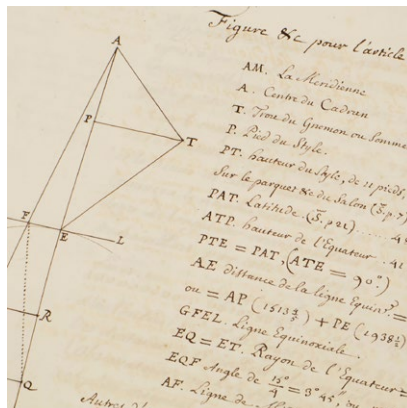 Figure &c pour l'article
AM. La Meridienne
A. Centre du Cadran
T. Trou du Gnomon ou Somme
P. Pied du Style.
PT. hauteur du Style, de 11 pieds,
Sur le parquet &c du Salon (S. p. 7)
PAT. Latitude (S. p 21) .... 4
ATP. hauteur de l'Equateur .. 41
PTE = PAT, (ATE = 90°.)
AE distance de la ligne Equin.
ou = AP (1513 ) + PE (1938
GFEL. Ligne Equinoxiale.
EQ = ET. Rayon de l'Equateur =
EQF Angle de 15°/4 = 3° 45',
AF. Ligne de
Autres
A
P
T
F
E
L
R
Q